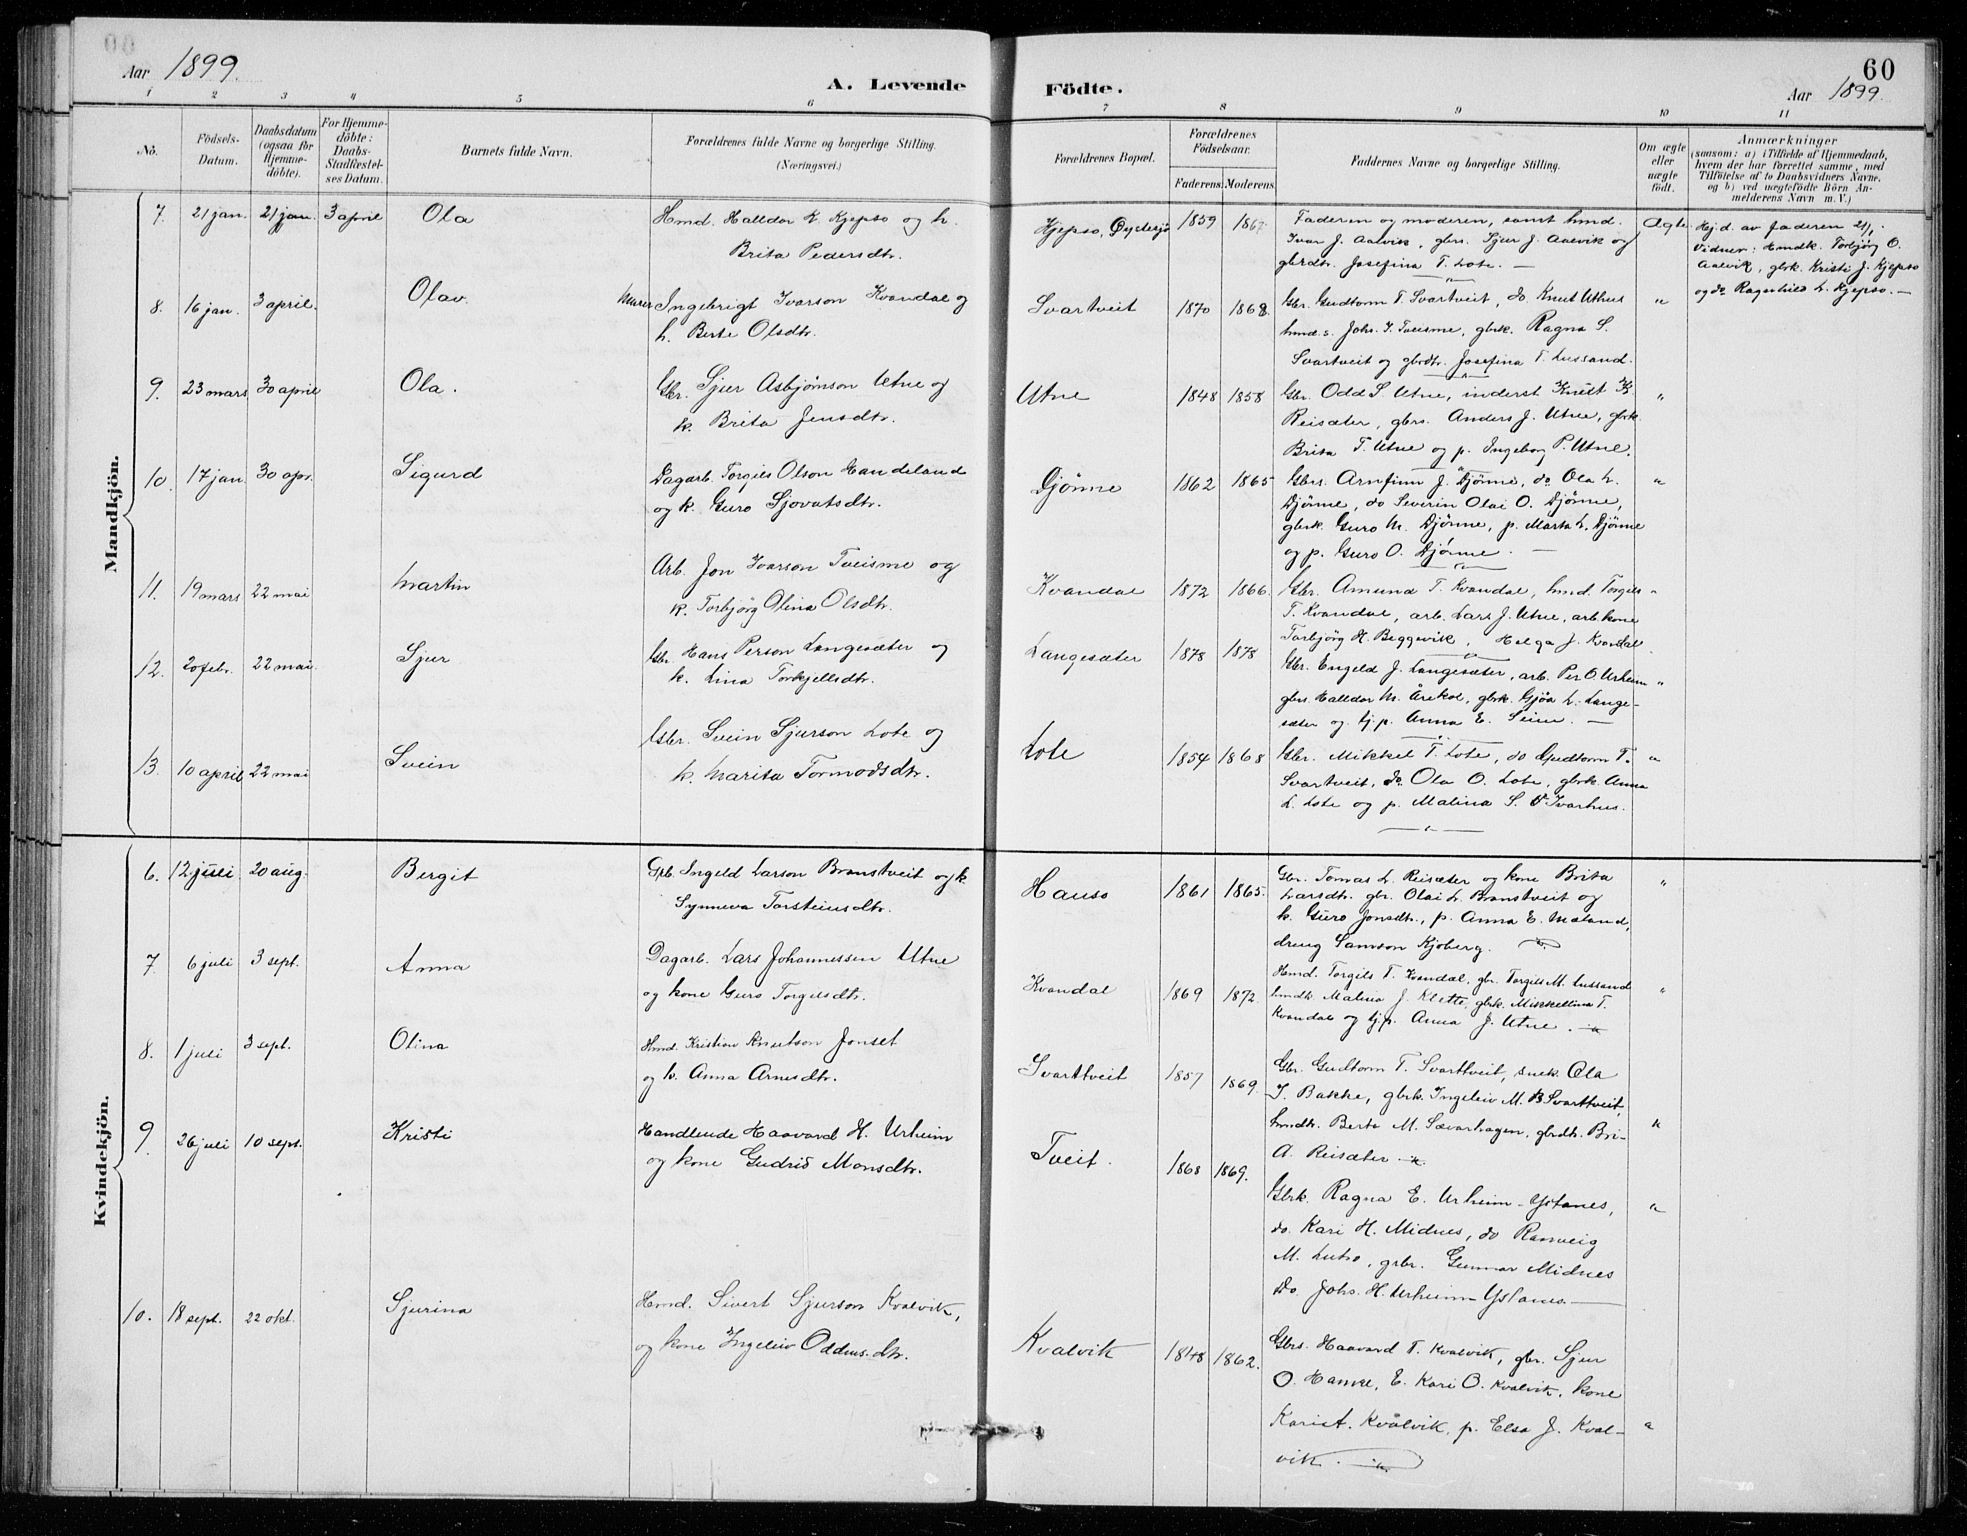 Aar 1899.
A. Levende
Födte.
60
Aar 1899.
1 2 3 4 5 6 7 8 9 10 11
No.
Födsels-Datum.
Daabsdatum (ogsaa for Hjemme-döbte).
For Hjemme-döbte: Daabs-Stadfæstel-ses Datum.
Barnets fulde Navn.
Forældrenes fulde Navne og borgerlige Stilling. (Næringsvei.)
Forældrenes Bopæl.
Forældrenes Födselsaar.
Faderens. Moderens.
Faddernes Navne og borgerlige Stilling.
Om ægte eller uægte födt.
Anmærkninger
(saasom: a) i Tilfælde af Hjemmedaab,
hvem der har forrettet samme, med
Tilföielse af to Daabsvidners Navne.
og b) ved uægtefödte Börn An-
melderens Navn m. V.)
Mandkjön.
7. 21 jan. 21 jan. 3 april Ola
Hmd. Halldor K. Kjepso og h.
Brita Pedersdtr.
Kjepso, 1859
Faderen og moderen, samt hmd.
Ivar J. Aalvik, gbrs. Sjur J. Aalvik og
gbrdtr. Josefina T. Lote. —
Ægte
Hj.d. av faderen 21/1.
Vidner: Hmdk. Torbjörg O.
Aalvik, gbrk. Kristi J. Kjepso
og do Ragnhild L. Kjepso. —
8. 16 jan. 3 april. Olav.
Murer Ingebrigt Ivarson Kvandal og
h. Berte Olsdtr.
Svartveit 1870 1868.
Gbr. Gudtorm T. Svartveit, do. Knut Uthus
hmd.s. Johs. I. Tveisme, gbrk. Ragna S.
Svartveit og gbrdtr. Josefina T. Lussand.
"
9. 23 mars 30 april Ola.
Gbr. Sjur Asbjörnson Utne og
k. Brita Jensdtr.
Utne 1848 1858
Gbr. Odd S. Utne, inderst Knut K.
Reisæter, gbrs. Anders J. Utne, gbrk.
Brita T. Utne og p. Ingeborg P. Utne.
"
10. 17 jan. 30 apr. Sigurd
Dagarb. Torgils Olson Handeland
og k. Guro Sjovatsdtr.
Djönne 1862 1865
Gbrs. Arnfinn J. Djönne, do. Ola L.
Djönne, do Severin Olai O. Djönne,
gbrk. Guro M. Djönne, p. Marta L. Djönne
og p. Guro O. Djönne. —
"
11. 19 mars 22 mai Martin
Arb. Jon Ivarson Tveisme og
k. Torbjörg Olina Olsdtr.
Kvandal 1872 1866.
Gbr. Amund T. Kvandal, hmd. Torgils
T. Kvandal, arb. Lars J. Utne, arb.kone
Torbjörg H. Beggevik, Helga J. Kvandal.
"
12. 20 febr. 22 mai. Sjur
Gbr. Hans Person Langesæter og
k. Lina Torkjellsdtr.
Langesæter 1878 1878
Gbr. Engeld J. Langesæter, arb. Per O. Urheim
gbrs. Halldor M. Årekol, gbrk. Gjöa L. Lange-
sæter og tj.p. Anna E. Seim. —
"
13. 10 april 22 mai Svein
Gbr. Svein Sjurson Lote og
k. Marita Tormodsdtr.
Lote 1854 1868
Gbr. Mikkel T. Lote, do Gudtorm T.
Svartveit, do. Ola O. Lote, gbrk. Anna
L. Lote og p. Malina S. Ivarhus.
"
Kvindekjön.
6. 12 juli 20 aug. Bergit
Grb. Ingeld Larson Branstveit og k.
Synneva Torsteinsdtr.
Hauso 1861 1865.
Gbr. Tomas L. Reisæter og kone Brita
Larsdtr. gbr. Olai L. Branstveit og
k. Guro Jonsdtr., p. Anna E. Maland,
dreng Samson Kjoberg.
"
7. 6 juli 3 sept. Anna
Dagarb. Lars Johannessen Utne
og kone Guro Torgilsdtr.
Kvandal 1869 1872.
Hmd. Torgils T. Kvandal, gbr. Torgils M. Lussand
hmdk. Malina J. Klette, gbrk. Mikkellina T.
Kvandal og tj.p. Anna J. Utne.
"
8. 1 juli 3 sept. Olina
Hmd. Kristian Knutson Jonset
og k. Anna Arnesdtr.
Svarttveit 1857 1869.
Gbr. Gudtorm T. Svarttveit, snek. Ola
I. Bakke, gbrk. Ingeleiv M. Svarttveit,
hmdtr. Berta M. Sævarhagen, gbrdtr. Bri-
A. Reisæter
"
9. 26 juli 10 sept. Kristi
Handlende Haavard H. Urheim
og kone Gudrid Monsdtr.
Tveit. 1868 1869.
Gbrk. Ragna E. Urheim-Ystanes,
do. Kari H. Midnes, do Ranveig
M. Lutro, grbr. Gunnar Midnes
Do. Johs. H. Urheim-Ystanes.
"
10. 18 sept. 22 okt. Sjurina
Hmd. Sivert Sjurson Kvalvik,
og kone Ingeleiv Oddms.dtr.
Kvalvik 1848 1862.
Gbrs. Haavard T. Kvalvik, gbr. Sjur
O. Hamre, E. Kari O. Kvalvik, kone
Kari Kvålvik, p. Elsa J. Kval-
vik.
"